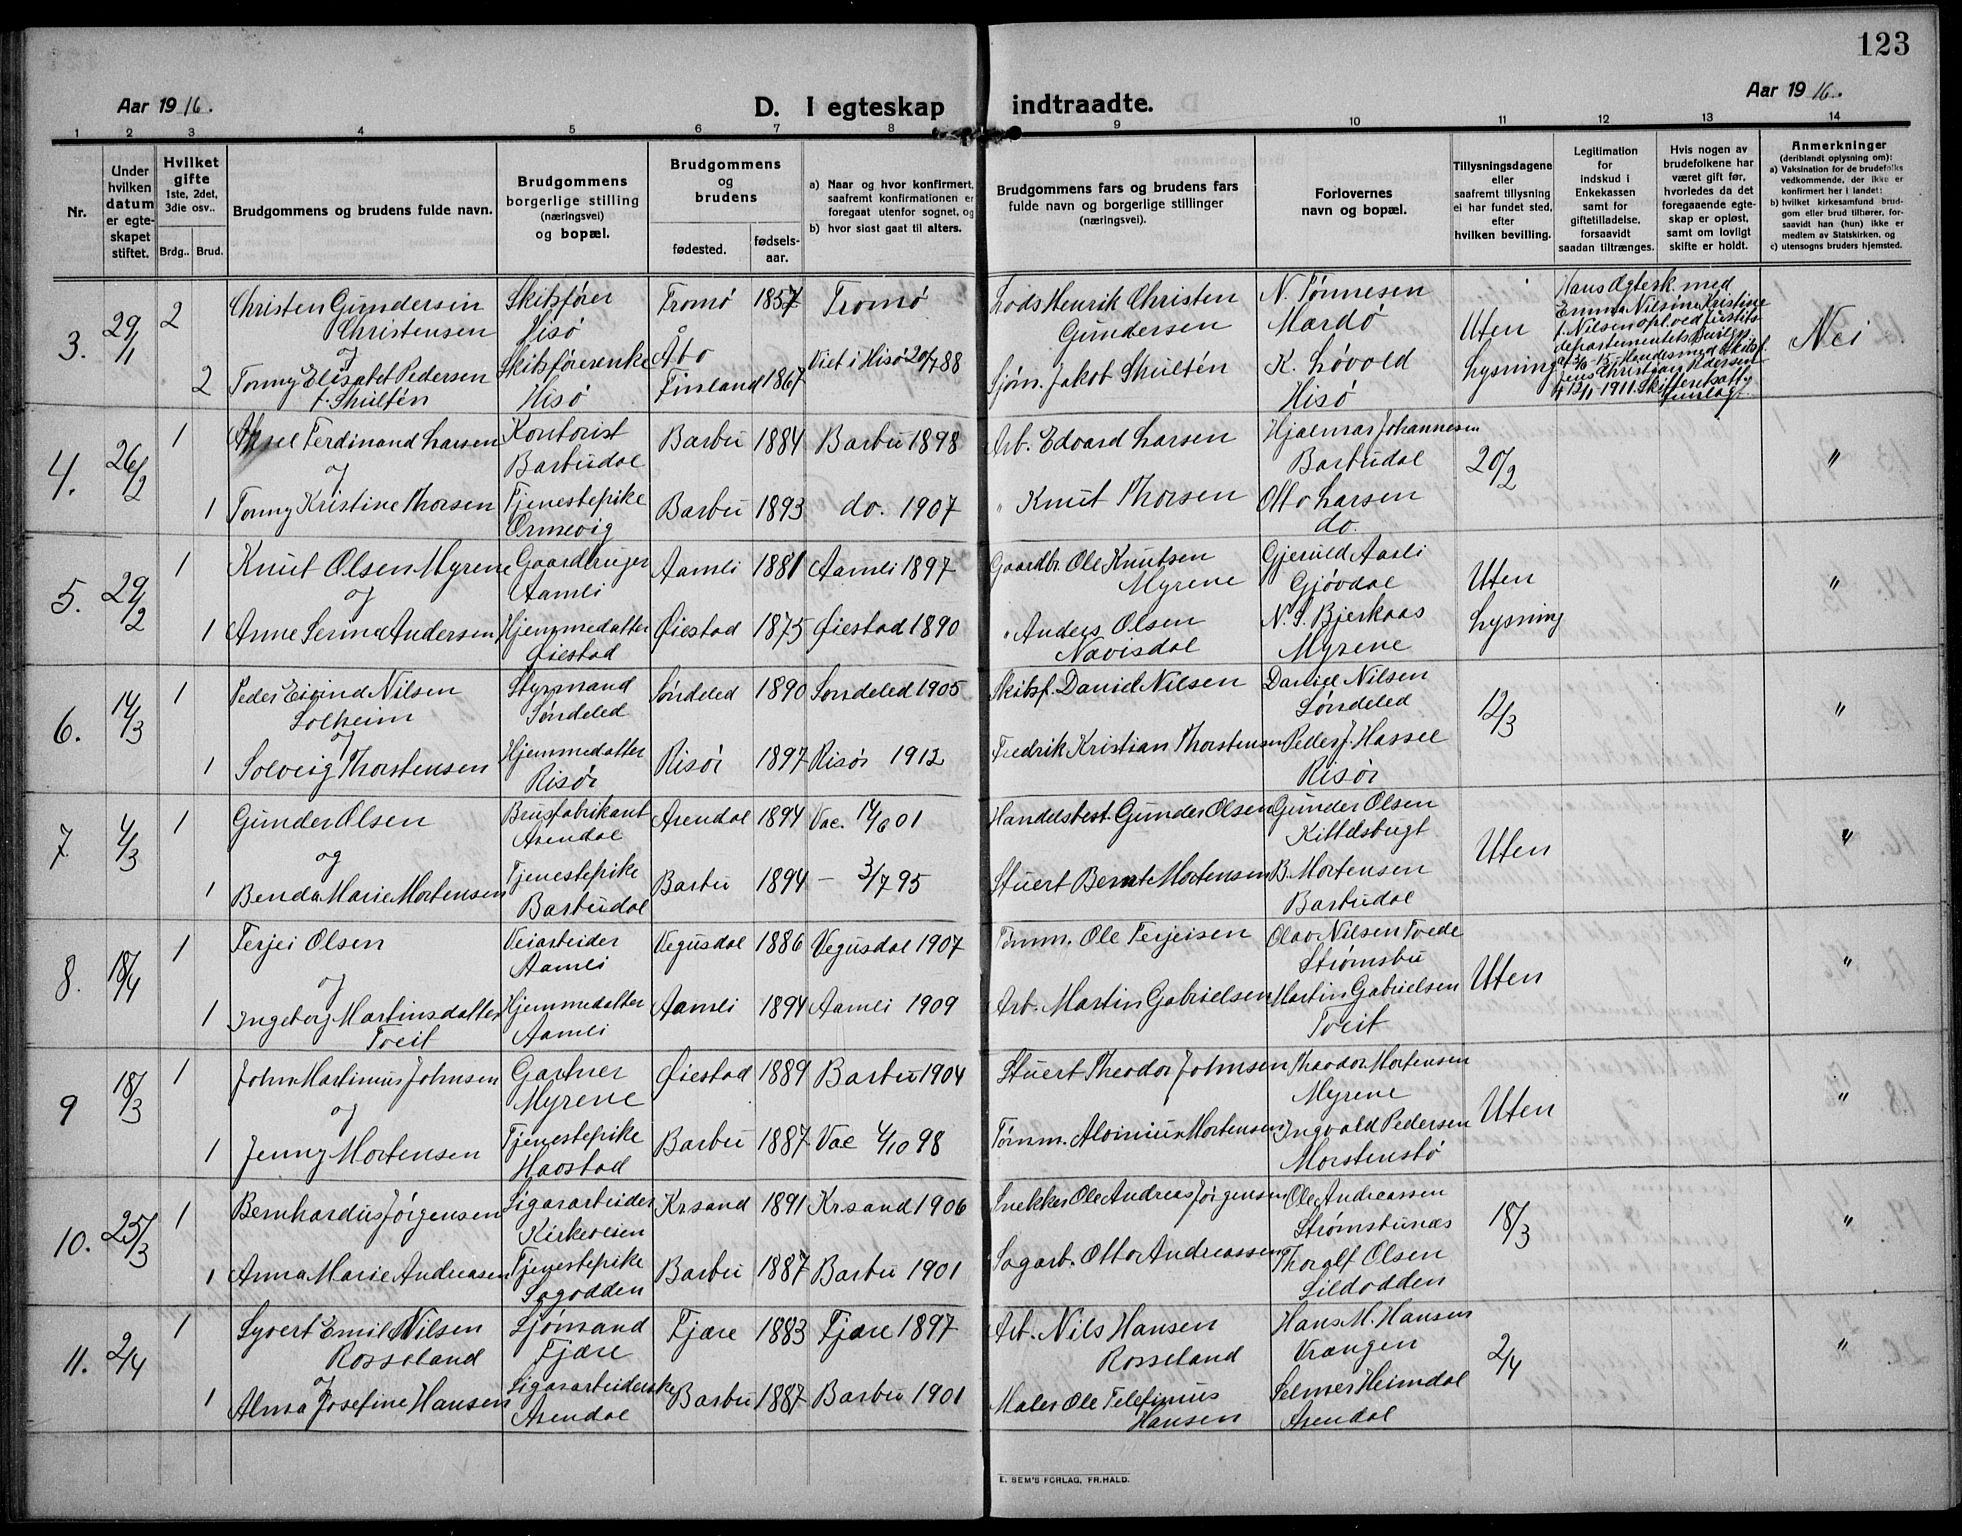 123
Aar 1916.
D. I egteskap indtraadte.
Aar 1916.
1 2 3 4 5 6 7 8 9 10 11 12 13 14
Nr.
Under hvilken datum er egteskapet stiftet.
Hvilket gifte 1ste, 2det, 3die osv..
Brdg.. Brud.
Brudgommens og brudens fulde navn.
Brudgommens borgerlige stilling (næringsvei) og bopæl.
Brudgommens og brudens
fødested.
fødsels-aar.
a) Naar og hvor konfirmert, saafremt konfirmationen er foregaat utenfor sognet, og
b) hvor sidst gaat til alters.
Brudgommens fars og brudens fars fulde navn og borgerlige stillinger (næringsvei).
Forlovernes navn og bopæl.
Tillysningsdagene eller saafremt tillysning ei har fundet sted, efter hvilken bevilling.
Legitimation for indskud i Enkekassen samt for giftetilladelse, forsaavidt saadan tiltrænges.
Hvis nogen av brudefolkene har været gift før, hvorledes da det foregaaende egteskap er opløst, samt om lovligt skifte er holdt.
Anmerkninger (deriblandt oplysning om): a) Vaksination for de brudefolks vedkommende, der ikke er konfirmert her i landet; b) hvilket kirkesamfund brudgom eller brud tilhører, forsaavidt han (hun) ikke er medlem av Statskirken, og c) utensogns bruders hjemsted.
3. 29/1 2 Christen Gundersen Christensen Skibsfører Hisø Tromø 1857 Tromø Lods Henrik Christen Gundersen N. Tønnesen Mardø Uten Lysning Nei
og
2 Tonny Elisabet Pedersen f. Shultén Skibsførerenke Hisø Åbo Finland 1867 Viet i Hisø 20/7 88 Sjøm. Jakob Shultén K. Løvold Hisø
Hans Egtesk. med
Emma Nilsine Kristine
f. Nilsen opl. ved Justits
departementets Bevilg.
Jens Christian Pedersen
1911.
4. 26/2 1 Aksel Ferdinand Larsen Kontorist Barbudal Barbu 1884 Barbu 1898 Arb. Edvard Larsen Hjalmar Johannesen Barbudal 20/2 "
og
1 Tonny Kristine Thorsen Tjenestepike Ormevig Barbu 1893 do. 1907 " Knut Thorsen Otto Larsen do.
5. 29/2 1 Knut Olsen Myrene Gaardbruger Aamli Aamli 1881 Aamli 1897 Gaardbr. Ole Knutsen Myrene Gjeruld Aasli Gjøvdal Uten Lysning "
og
1 Anne Serina Andersen Hjemmedatter Øiestad Øiestad 1875 Øiestad 1890 " Anders Olsen Navisdal N. S. Bjerkaas Myrene
6. 14/3 1 Peder Eivind Nilsen Solheim Styrmand Søndeled Søndeled 1890 Søndeled 1905 Skibsf. Daniel Nilsen Daniel Nilsen Søndeled 12/3 "
og
1 Solveig Thorstensen Hjemmedatter Risør Risør 1897 Risør 1912 Fredrik Kristian Thorstensen Peder J. Hassel Risør
7 4/3 1 Gunder Olsen Brusfabrikant Arendal Arendal 1894 Vac. 14/6 01 Handelsbest. Gunder Olsen Gunder Olsen Kittelsbugt Uten "
og
1 Benda Marie Mortensen Tjenestepike Barbudal Barbu 1894 - 3/7 95 Stuert Bernt Mortensen B. Mortensen Barbudal
8. 18/4 1 Terjei Olsen Veiarbeider Aamli Vegusdal 1886 Vegusdal 1907 Tømm. Ole Terjeisen Olav Nilsen Tvede Strømsbu Uten "
og
1 Ingeborg Martinsdatter Tveit Hjemmedatter Aamli Aamli 1894 Aamli 1909 Arb. Martin Gabrielsen Martin Gabrielsen Tveit
9 18/3 1 John Martinius Johnsen Gartner Myrene Øiestad 1889 Barbu 1904 Stuert Theodor Johnsen Theodor Mortensen Myrene Uten "
og
1 Jenny Mortensen Tjenestepike Haastad Barbu 1887 Vac 4/10 98 Tømm. Mortensen Ingvald Pedersen Morstenstø
10. 25/3 1 Bernhardus Jørgensen Sigararbeider Kirkeveien Krsand 1891 Krsand 1906 Snekker Ole Andreas Jørgensen Ole Andreassen Strømsbunæs 18/3 "
1 Anna Marie Andreasen Tjenestepike Sagodden Barbu 1887 Barbu 1901 Sagarb. Otto Andreassen Thoralf Olsen Sildodden
11. 2/4 1 Syvert Emil Nilsen Rosseland Sjømand Fjære Fjære 1883 Fjære 1897 Arb. Nils Hansen Rosseland Hans M. Hansen Vrængen 2/4 "
og
1 Alma Josefine Hansen Sigararbeiderske Arendal Barbu 1887 Barbu 1901 Maler Ole Telefinius Hansen Selmer Heimdal Arendal
E. SEM'S FORLAG, FR.HALD.